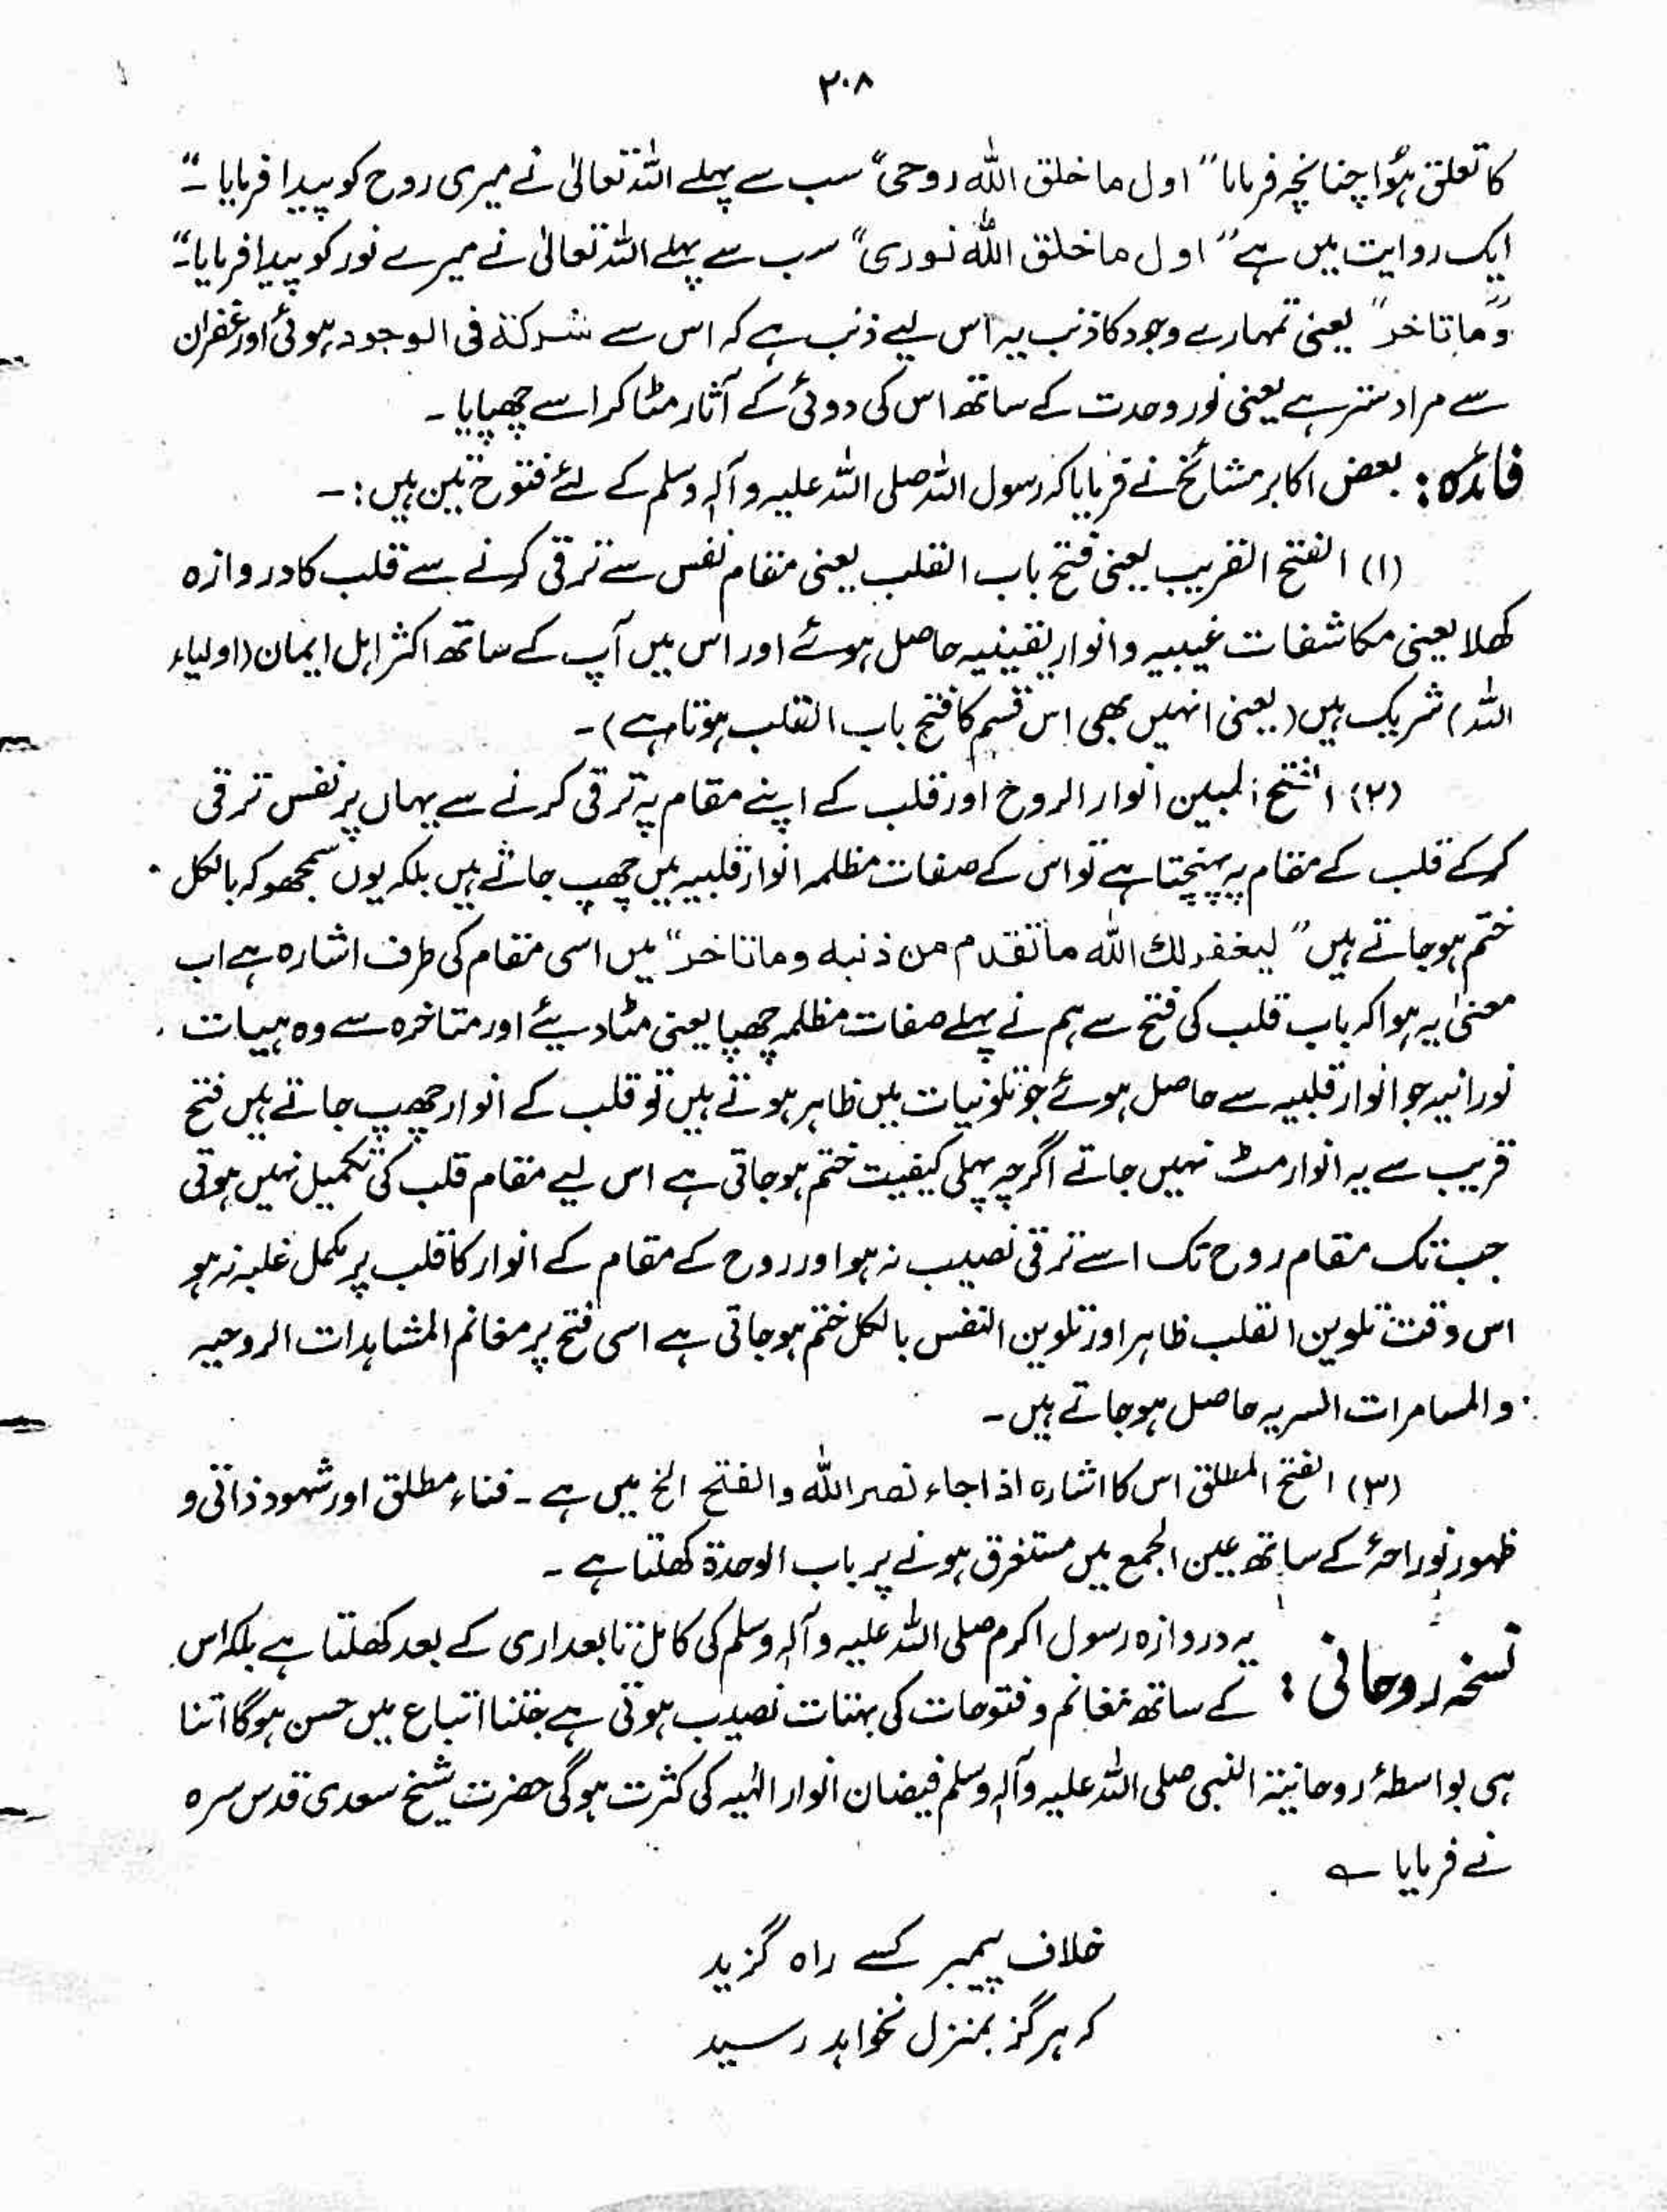 ۲۰۸
کا تعلق ہؤا چنانچہ فرمایا "اول ما خلق اللہ روحی" سب سے پہلے اللہ تعالیٰ نے میری روح کو پیدا فرمایا ۔"
ایک روایت میں ہے "اول ما خلق اللہ نوری" سب سے پہلے اللہ تعالیٰ نے میرے نور کو پیدا فرمایا ۔"
"وما تاخر" یعنی تمہارے وجود کا ذنب یہ اس لیے ذنب ہے کہ اس سے شرکۃ فی الوجود ہوئی اور غفران
سے مراد ستر ہے یعنی نور وحدت کے ساتھ اس کی دوئی کے آثار مٹا کر اسے چھپایا ۔
فائدہ : بعض اکابر مشائخ نے فرمایا کہ رسول اللہ صلی اللہ علیہ وآلہ وسلم کے لئے فتوح تین ہیں :-
(۱) الفتح القریب یعنی فتح باب القلب یعنی مقام نفس سے ترقی کرنے سے قلب کا دروازہ
کھلا یعنی مکاشفات غیبیہ و انوار یقینیہ حاصل ہوئے اور اس میں آپ کے ساتھ اکثر اہل ایمان (اولیاء
اللہ) شریک ہیں (یعنی انہیں بھی اس قسم کا فتح باب القلب ہوتا ہے) ۔
(۲) الفتح المبین انوار الروح اور قلب کے اپنے مقام پہ ترقی کرنے سے یہاں پر نفس ترقی
کرکے قلب کے مقام پہ پہنچتا ہے تو اس کے صفات مظلمہ انوار قلبیہ میں چھپ جاتے ہیں بلکہ یوں سمجھو کہ بالکل
ختم ہو جاتے ہیں "لیغفر لک اللہ ما تقدم من ذنبہ وما تاخر" میں اسی مقام کی طرف اشارہ ہے اب
معنیٰ یہ ہوا کہ باب قلب کی فتح سے ہم نے پہلے صفات مظلمہ چھپا یعنی مٹا دیئے اور متاخرہ سے وہ ہیات
نورانیہ جو انوار قلبیہ سے حاصل ہوئے جو تلونیات میں ظاہر ہوتے ہیں تو قلب کے انوار چھپ جاتے ہیں فتح
قریب سے یہ انوار مٹ نہیں جاتے اگرچہ پہلی کیفیت ختم ہو جاتی ہے اس لیے مقام قلب کی تکمیل نہیں ہوتی
جب تک مقام روح تک اسے ترقی نصیب نہ ہو اور روح کے مقام کے انوار کا قلب پر مکمل غلبہ نہ ہو
اس وقت تلوین القلب ظاہر اور تلوین النفس بالکل ختم ہو جاتی ہے اسی فتح پر مغانم المشاہدات الروحیہ
والمسامرات السریہ حاصل ہو جاتے ہیں ۔
(۳) الفتح المطلق اس کا اشارہ اذا جاء نصر اللہ والفتح الخ میں ہے ۔ فناء مطلق اور شہود ذاتی و
ظہور نور احدؐ کے ساتھ عین الجمع میں مستغرق ہونے پر باب الوحدۃ کھلتا ہے ۔
نسخہ روحانی : یہ دروازہ رسول اکرم صلی اللہ علیہ وآلہ وسلم کی کامل تابعداری کے بعد کھلتا ہے بلکہ اس
کے ساتھ مغانم و فتوحات کی بہتات نصیب ہوتی ہے جتنا اتباع میں حسن ہوگا اتنا
ہی بواسطۂ روحانیۃ النبی صلی اللہ علیہ وآلہ وسلم فیضان انوار الٰہیہ کی کثرت ہوگی حضرت شیخ سعدی قدس سرہ
نے فرمایا ؎
خلاف پیمبر کسے راہ گزید
کہ ہرگز بمنزل نخواہد رسید